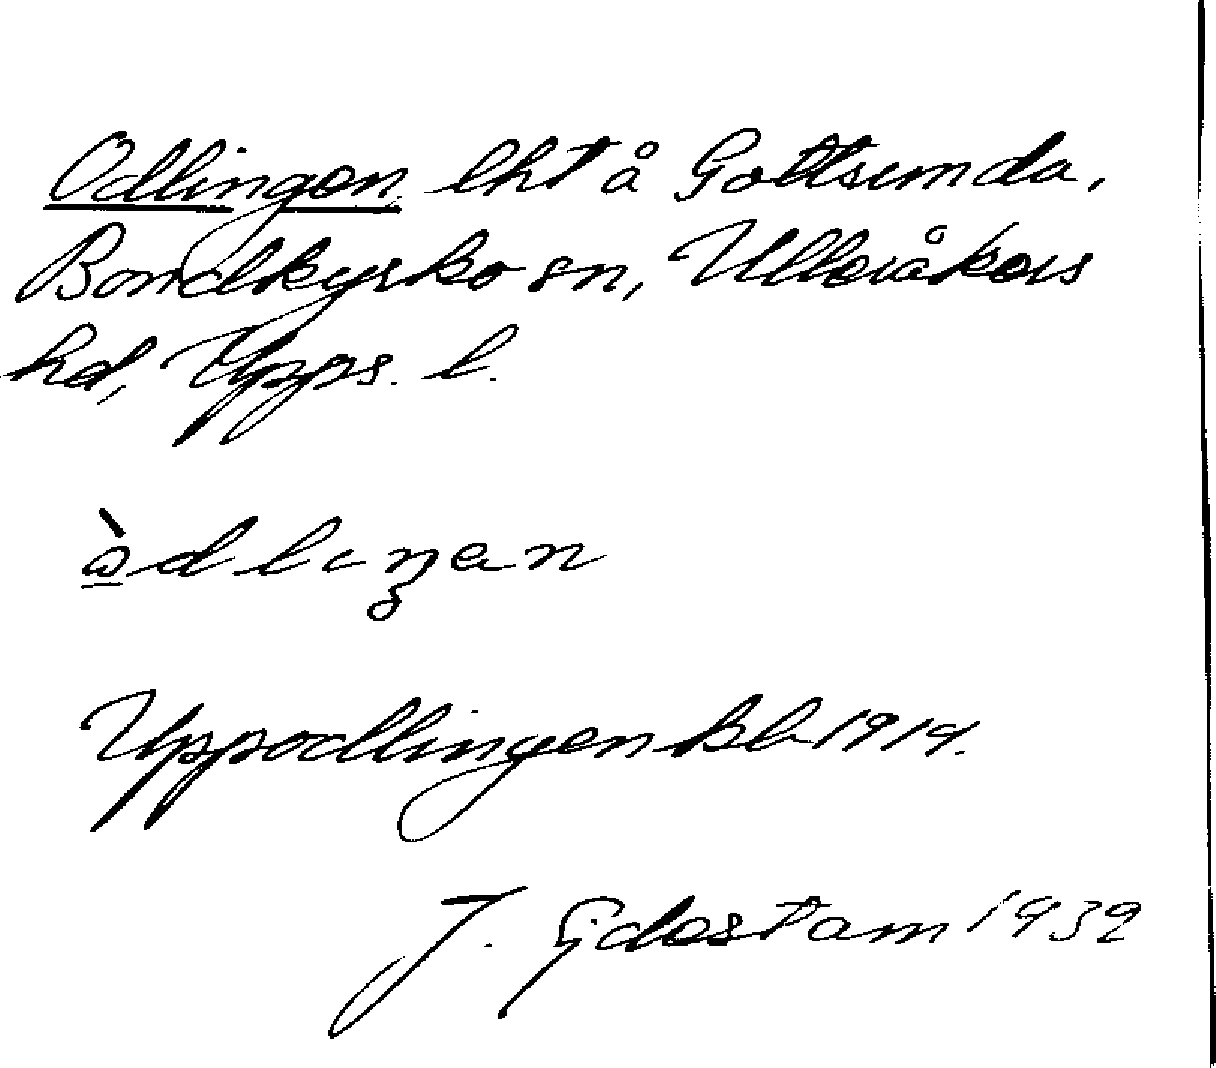 Odlingen lht å Gottsunda,
Bondkyrko sn, Ulleråkers
hd, Upps. l.
ὰdlıŋen
Uppodlingen Kbl 1914.
J. Gidestam 1932